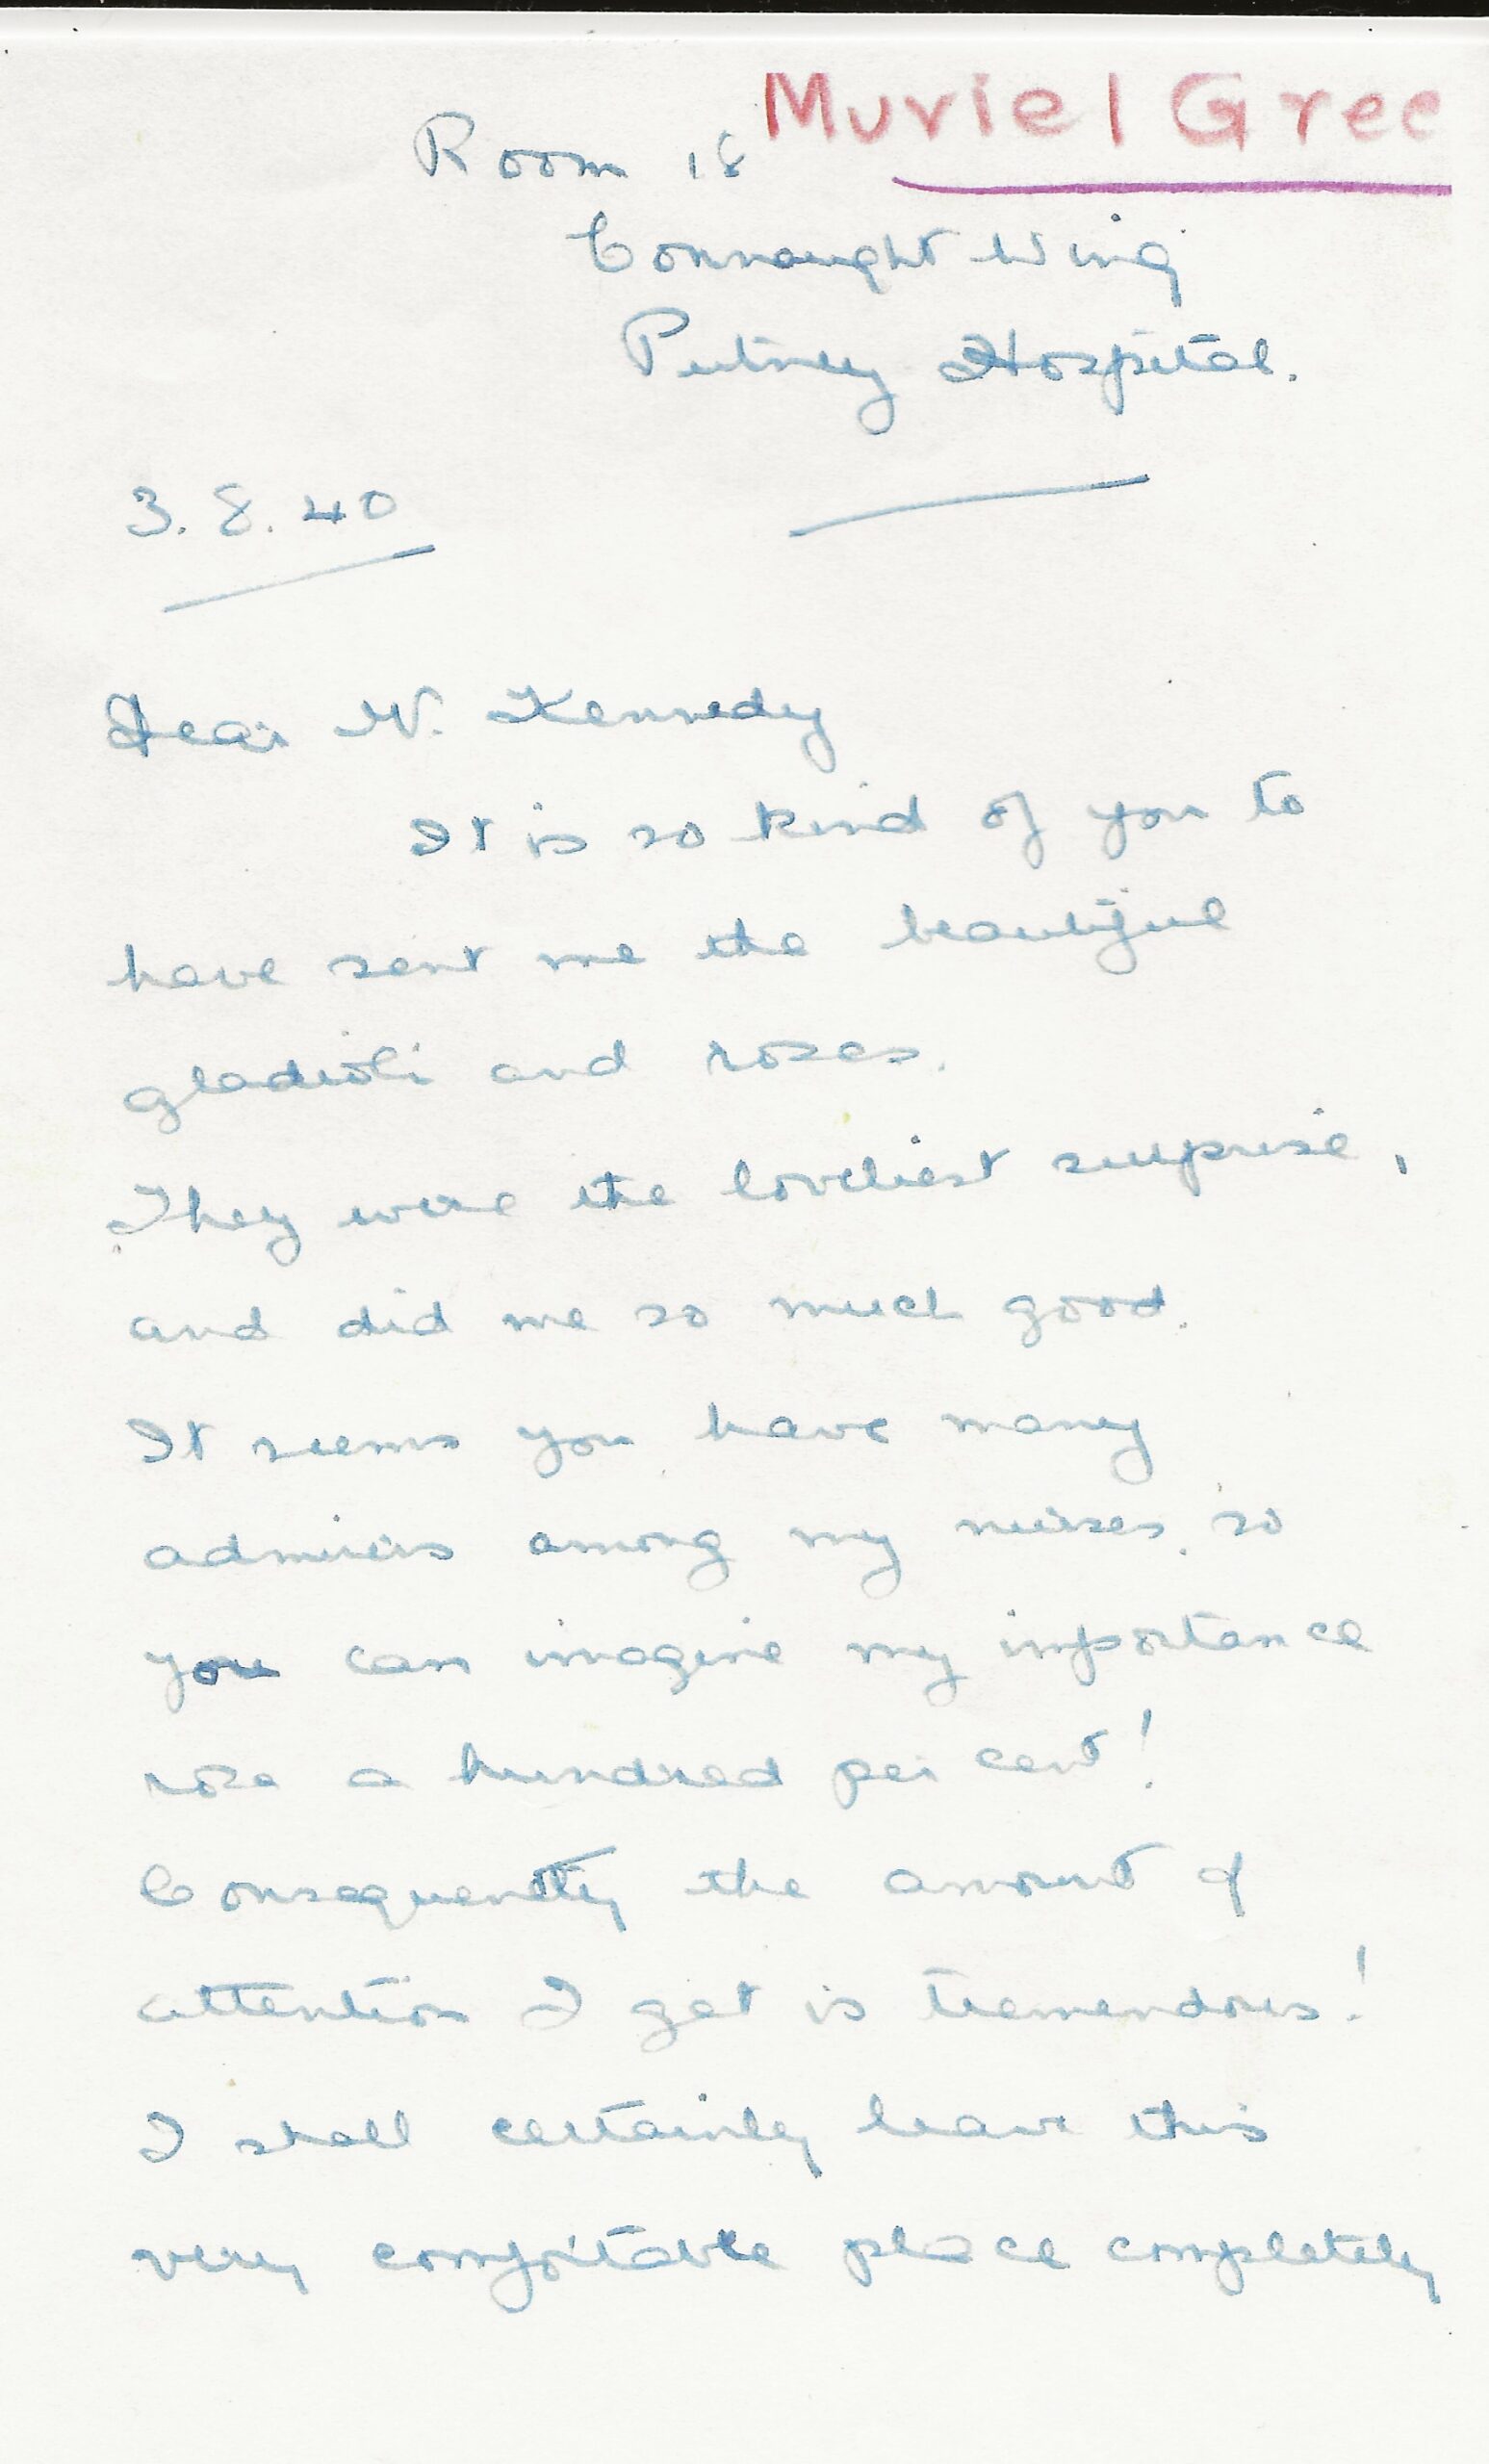 Muriel Gree
Room 18
Connaught Wing
Putney Hospital.
3. 8. 40
Dear Kennedy
It is so kind of you to
have sent me the beautiful
gladioli and roses.
They were the loveliest surprise,
and did me so much good.
It seems you have many
admirers among my nurses, so
you can imagine my importance
rose a hundred per cent!
Consequently the amount of
attention I get is tremendous!
I shall certainly leave this
very comfortable place completely